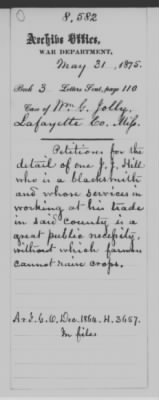 8,582
Archive Office,
WAR DEPARTMENT,
May 31, 1875.
Book 3 Letters Sent, page 110
Case of Wm. C. Jolly,
Lafayette Co. Miss.
Petitions for the
detail of one J. J. Hill
who is a blacksmith
and whose services in
working at his trade
in said county is a
great public necessity,
without which farmers
cannot raise crops.
A. & I. G. O. Dec. 1864. H. 3657.
In files